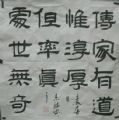 傳家有道
惟淳厚
但率真
處世無奇